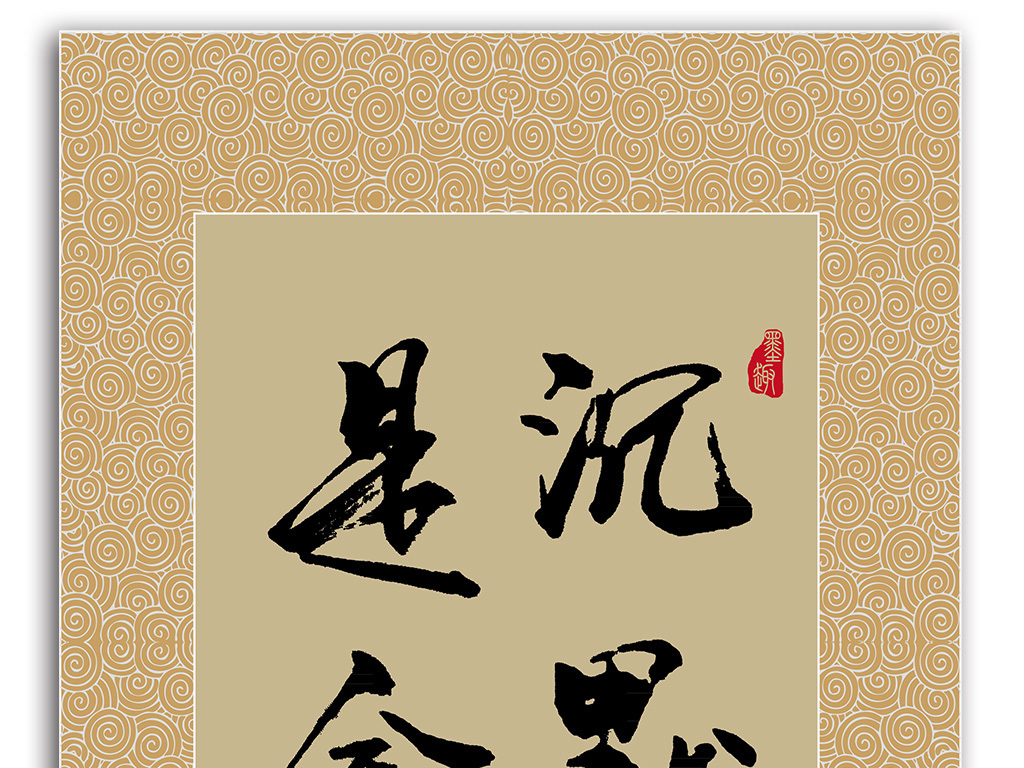 墨趣
沉默
是金